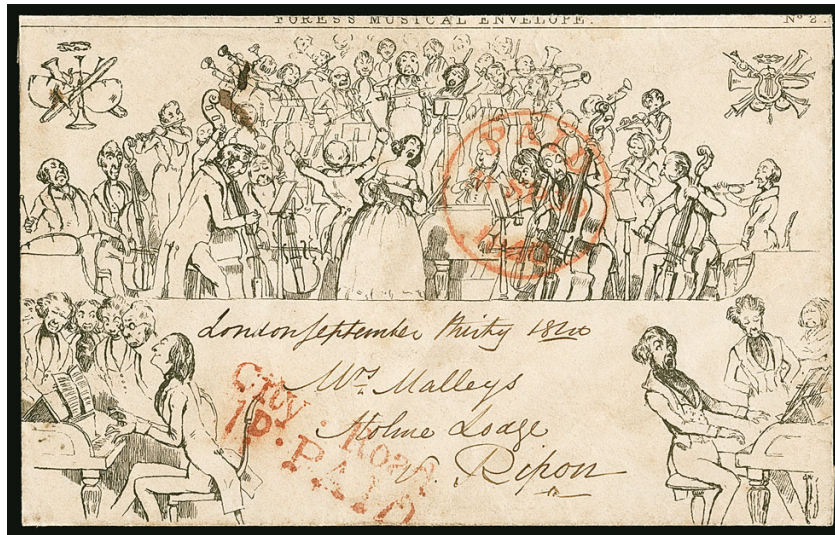 FORES'S MUSICAL ENVELOPE.
Nº 2.
PAID
1840
London September Thirty 1840
Mrs. Malleys
Lodge
Ripon
City. Road
1D. PAID